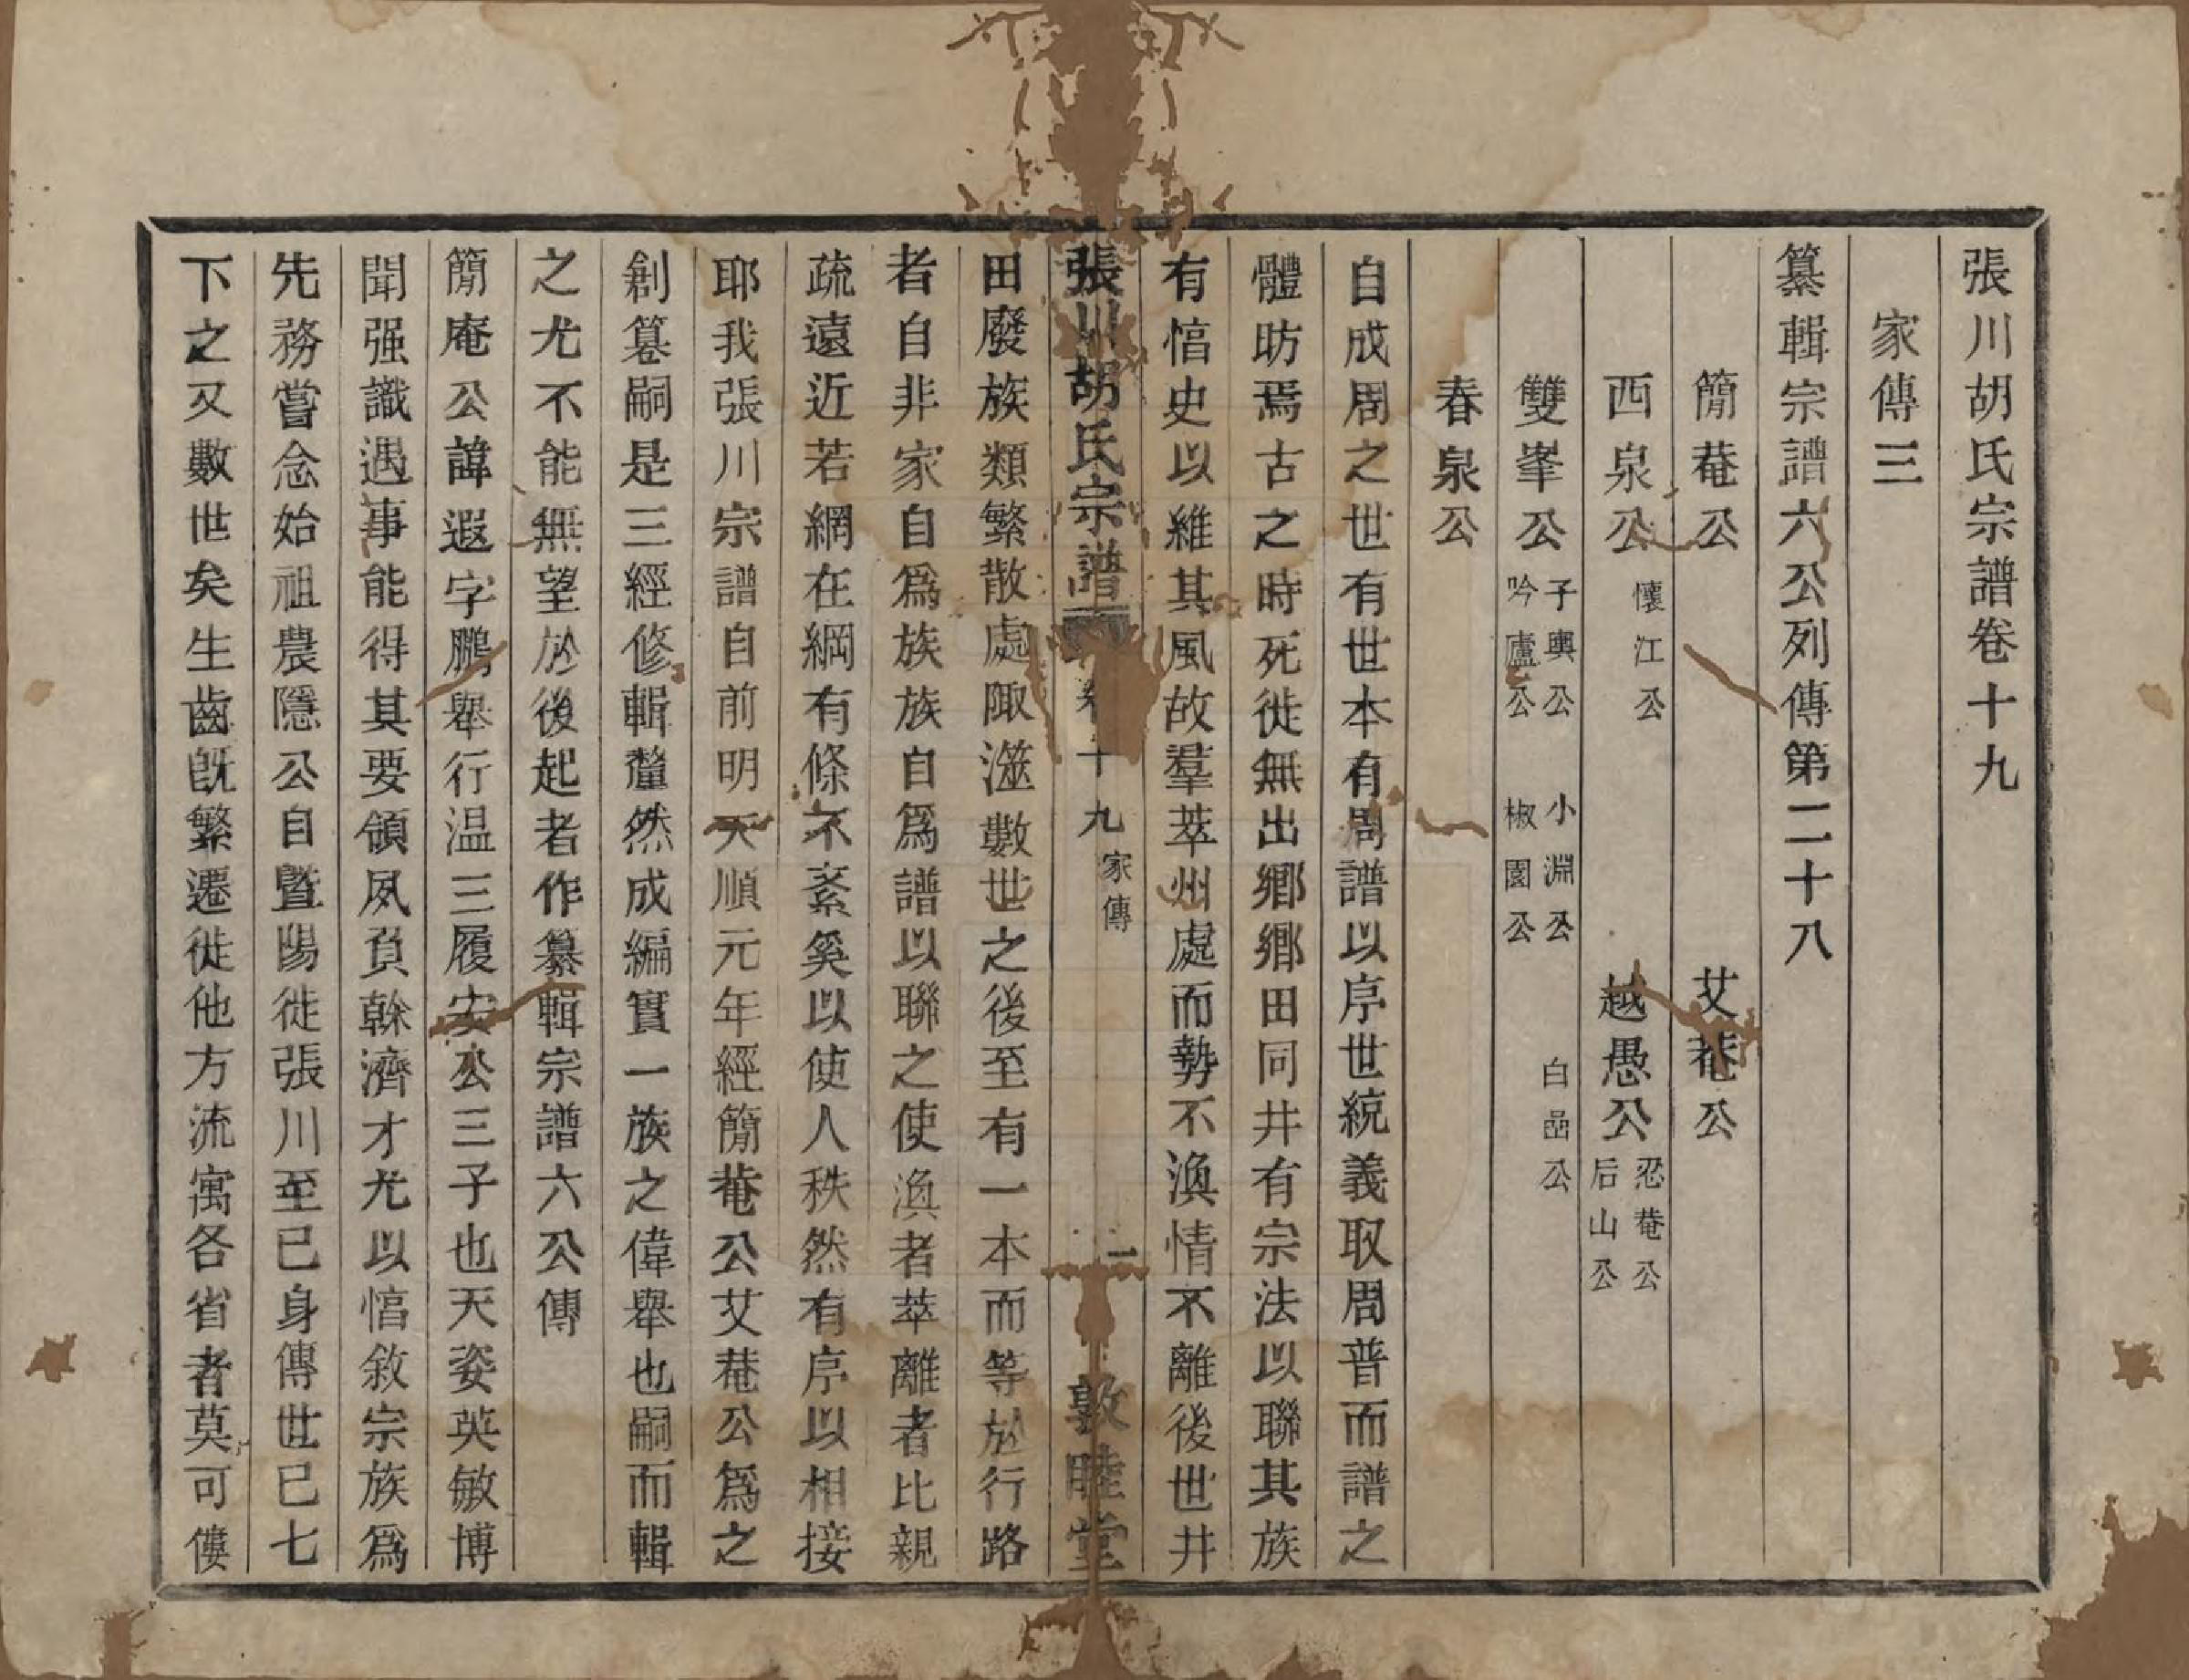 張川胡氏宗譜卷十九
家傳三
纂輯宗譜六公列傳第二十八
簡菴公 艾菴公
西泉公 懷江公 越愚公 忍菴公 后山公
雙峯公 子輿公 吟廬公 小淵公 椒園公 白嵒公
春泉公
自成周之世有世本有周譜以序世統義取周普而譜之
體昉焉古之時死徙無出鄉鄉田同井有宗法以聯其族
有愔史以維其風故羣萃州處而勢不渙情不離後世井
張川胡氏宗譜 卷十九 家傳 一 敦睦堂
田廢族類繁散處陬澨數世之後至有一本而等於行路
者自非家自爲族族自爲譜以聯之使渙者萃離者比親
疏遠近若網在綱有條不紊奚以使人秩然有序以相接
耶我張川宗譜自前明天順元年經簡菴公艾菴公爲之
創篡嗣是三經修輯釐然成編實一族之偉舉也嗣而輯
之尤不能無望於後起者作纂輯宗譜六公傳
簡庵公諱遐字鵬舉行温三履安公三子也天姿英敏博
聞强識遇事能得其要領夙負榦濟才尤以愔敘宗族爲
先務嘗念始祖農隱公自暨陽徙張川至已身傳世已七
下之又數世矣生齒旣繁遷徙他方流寓各省者莫可僂